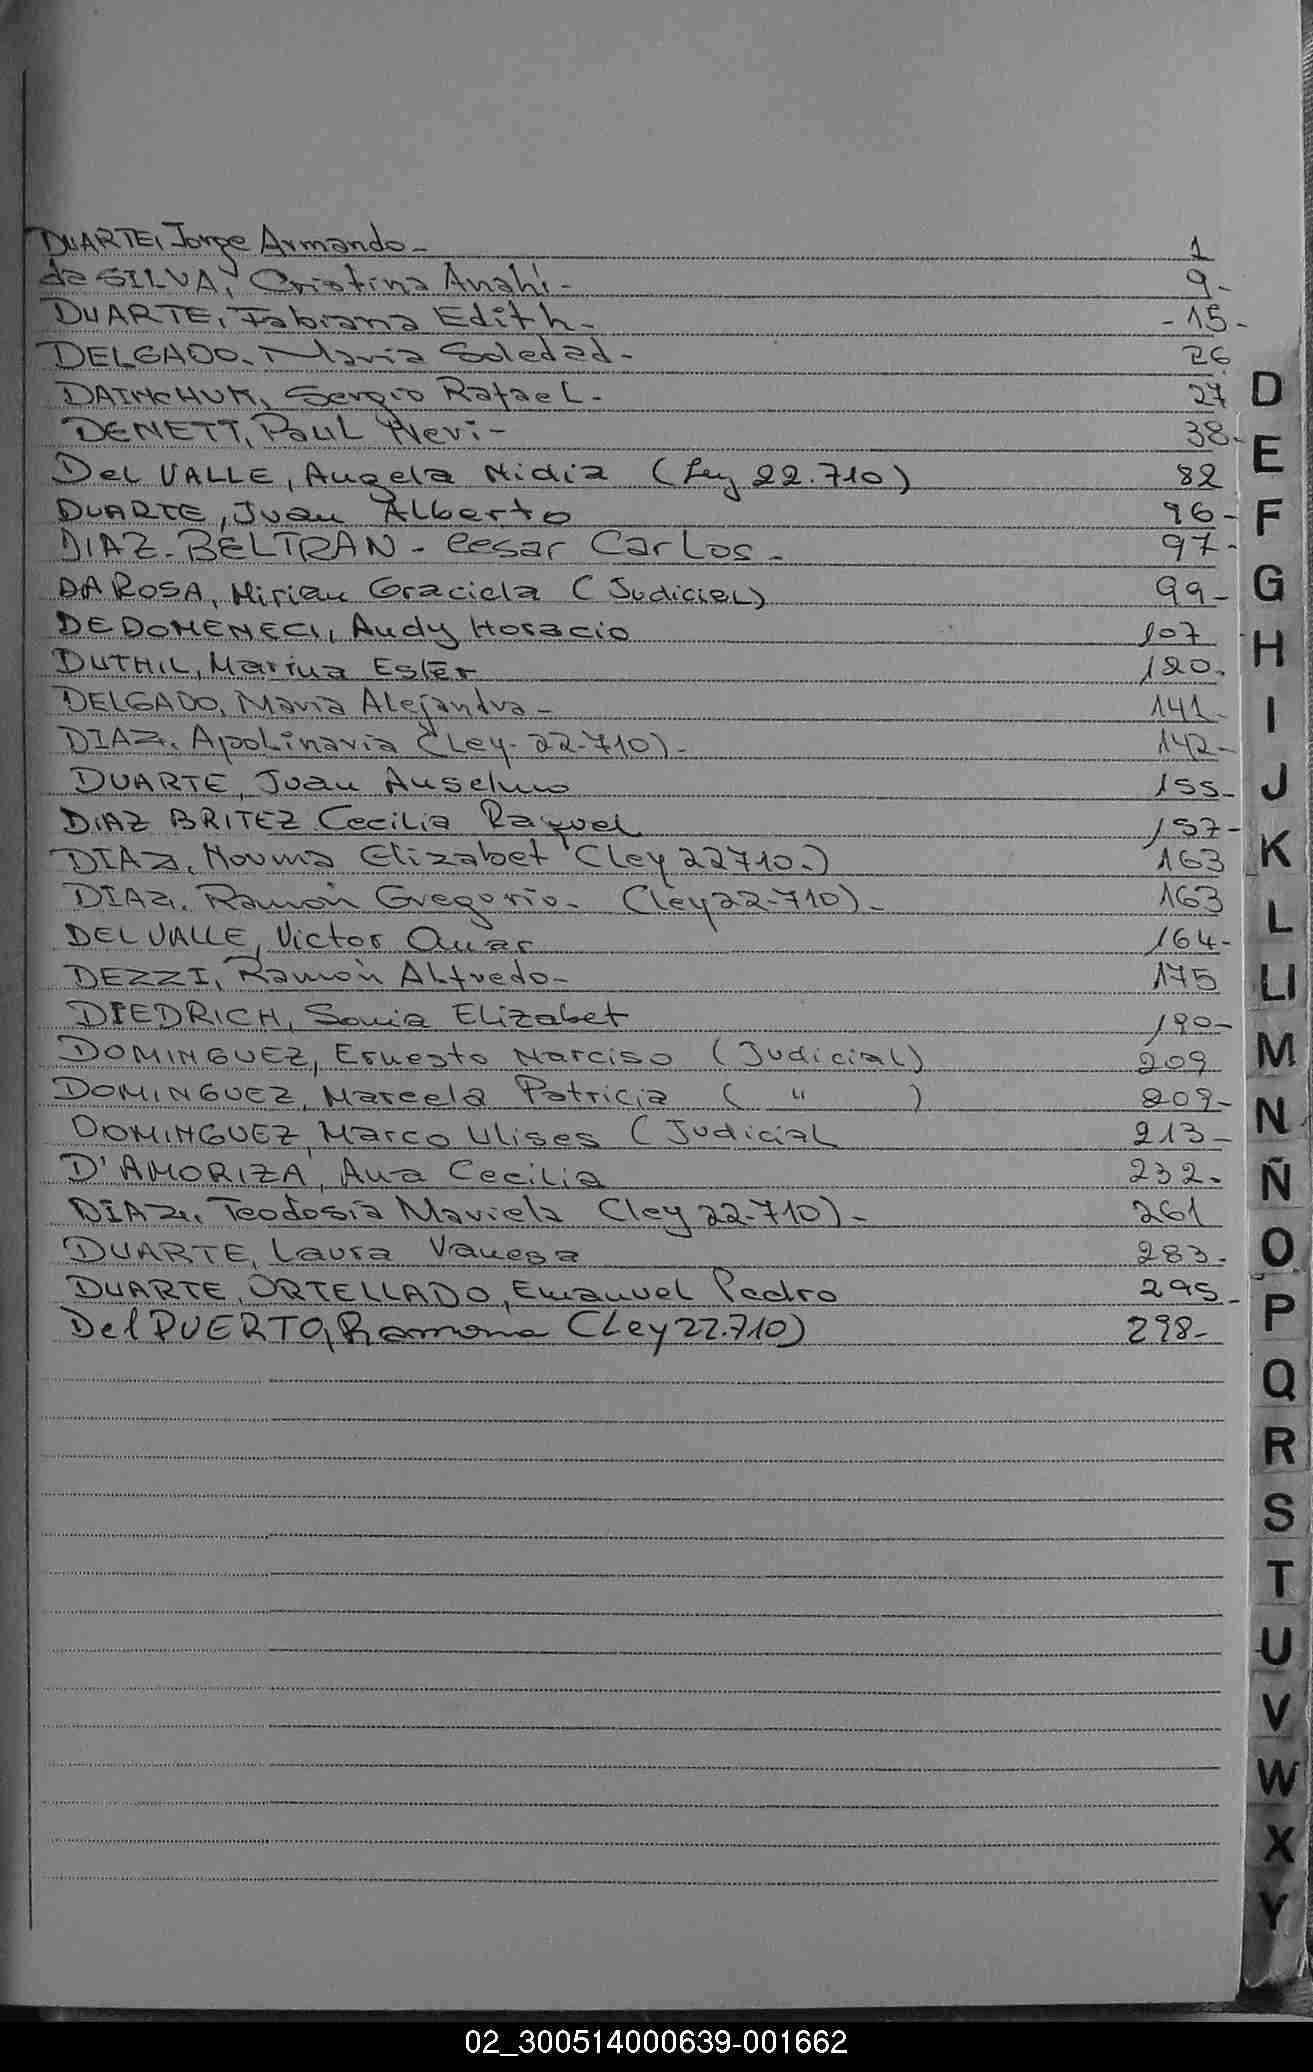 DUARTE, Jorge Armando- 1
de SILVA, Cristina Anahi- 9-
DUARTE, Fabiana Edith- -15-
DELGADO. Maria Soledad- 26
Sergio Rafael- 27
DENETT, Paul Nevi- 38-
Del VALLE, Angela Nidia (Ley 22.710) 82
DUARTE, Juan Alberto 96-
DIAZ-BELTRAN- Cesar Carlos- 97-
DA ROSA, Mirian Graciela (Judicial) 99-
DEDOMENECI, Audy Horacio 107
DUTHIL, Marina Ester 120.
DELGADO, Maria Alejandra- 141-
DIAZ, Apolinaria (Ley-22-710)- 142-
DUARTE, Juan Anselmo 155-
DIAZ BRITEZ Cecilia Raquel 157-
DIAZ, Norma Elizabet (Ley 22710.) 163
DIAZ. Ramón Gregorio- (Ley 22-710)- 163
DEL VALLE, Victor Omar 164-
DEZZI, Ramón Alfredo- 175
DIEDRICH, Sonia Elizabet 190-
DOMINGUEZ, Ernesto Narciso (Judicial) 209
DOMINGUEZ, Marcela Patricia ( " ) 209-
DOMINGUEZ, Marco Ulises (Judicial 213-
D'AMORIZA, Ana Cecilia 232-
DIAZ, Teodosia Mariela (Ley 22-710)- 261
DUARTE, Laura Vanesa 283.
DUARTE, ORTELLADO, Emanuel Pedro 295-
Del PUERTO, Ramona (Ley 22.710) 298-
D
E
F
G
H
I
J
K
L
Ll
M
N
Ñ
O
P
Q
R
S
T
U
V
W
X
Y
02_300514000639-001662